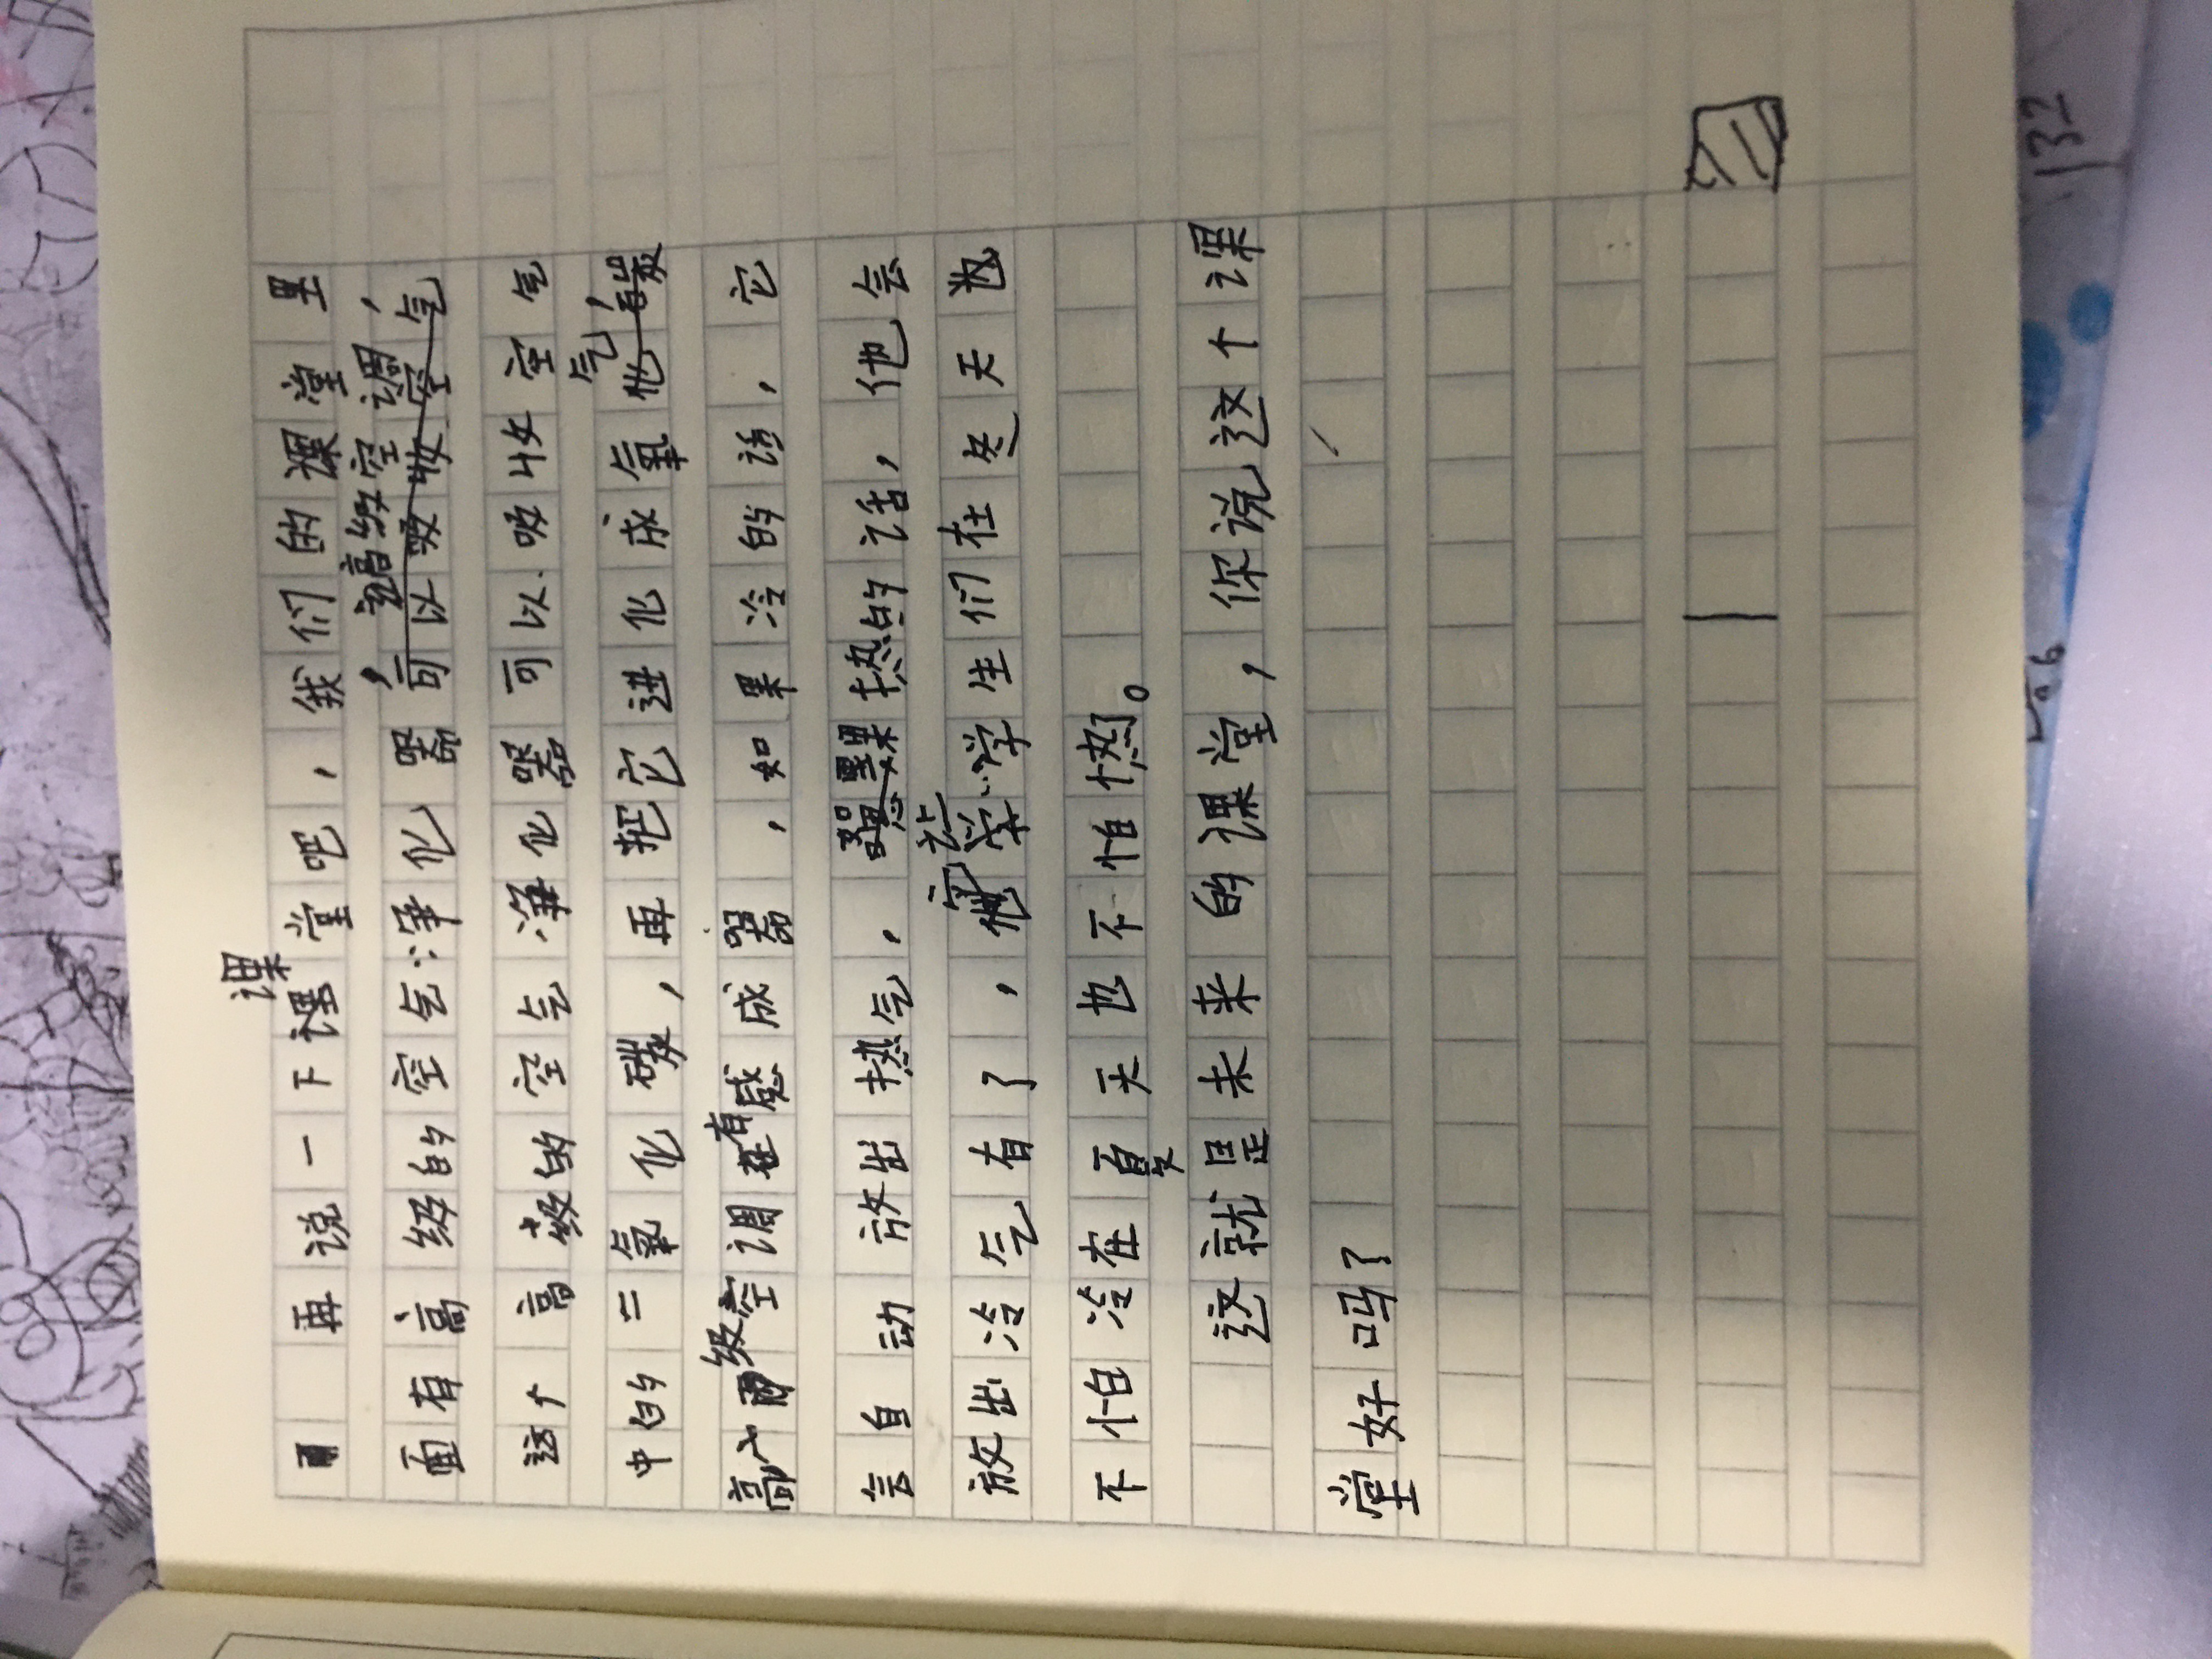 再说一下课堂吧，我们的课堂里
面有高级的空气净化器，高级空调，
这个高级的空气净化器可以吸收空气
中的二氧化碳，再把它进化成氧气，
高级空调有感成器，如果冷的话，它
会自动放出热气，如果热的话，他会
放出冷气有了，它让学生们在冬天也
不怕冷在夏天也不怕热。
这就是未来的课堂，你说这个课
堂好吗了
132